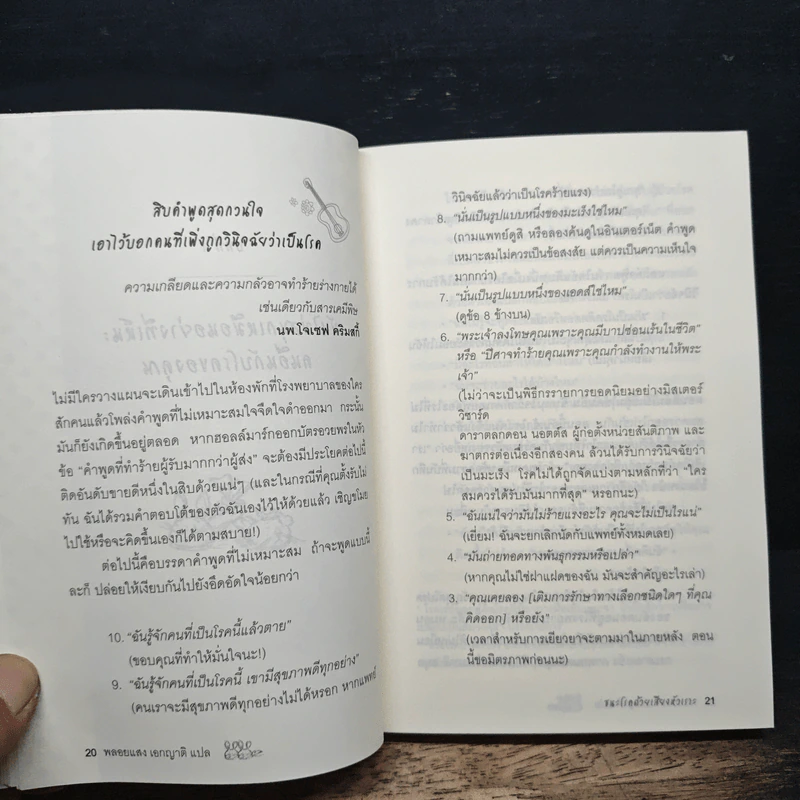 สิบคำพูดสุดกวนใจ
เอาไว้บอกคนที่เพิ่งถูกวินิจฉัยว่าเป็นโรค
ความเกลียดและความกลัวอาจทำร้ายร่างกายได้
เช่นเดียวกับสารเคมีพิษ
นพ.โจเซฟ คริมสกี้
ไม่มีใครวางแผนจะเดินเข้าไปในห้องพักที่โรงพยาบาลของใคร
สักคนแล้วโพล่งคำพูดที่ไม่เหมาะสมใจจืดใจดำออกมา กระนั้น
มันก็ยังเกิดขึ้นอยู่ตลอด หากฮอลล์มาร์กออกบัตรอวยพรในหัว
ข้อ “คำพูดที่ทำร้ายผู้รับมากกว่าผู้ส่ง” จะต้องมีประโยคต่อไปนี้
ติดอันดับขายดีหนึ่งในสิบด้วยแน่ๆ (และในกรณีที่คุณตั้งรับไม่
ทัน ฉันได้รวมคำตอบโต้ของตัวฉันเองไว้ให้ด้วยแล้ว เชิญขโมย
ไปใช้หรือจะคิดขึ้นเองก็ได้ตามสบาย!)
ต่อไปนี้คือบรรดาคำพูดที่ไม่เหมาะสม ถ้าจะพูดแบบนี้
ละก็ ปล่อยให้เงียบกันไปยังอึดอัดใจน้อยกว่า
10. “ฉันรู้จักคนที่เป็นโรคนี้แล้วตาย”
(ขอบคุณที่ทำให้มั่นใจนะ!)
9. “ฉันรู้จักคนที่เป็นโรคนี้ เขามีสุขภาพดีทุกอย่าง”
(คนเราจะมีสุขภาพดีทุกอย่างไม่ได้หรอก หากแพทย์
20 พลอยแสง เอกญาติ แปล
วินิจฉัยแล้วว่าเป็นโรคร้ายแรง)
8. “นั่นเป็นรูปแบบหนึ่งของมะเร็งใช่ไหม”
(ถามแพทย์ดูสิ หรือลองค้นดูในอินเตอร์เน็ต คำพูด
เหมาะสมไม่ควรเป็นข้อสงสัย แต่ควรเป็นความเห็นใจ
มากกว่า)
7. “นั่นเป็นรูปแบบหนึ่งของเอดส์ใช่ไหม”
(ดูข้อ 8 ข้างบน)
6. “พระเจ้าลงโทษคุณเพราะคุณมีบาปซ่อนเร้นในชีวิต”
หรือ “ปีศาจทำร้ายคุณเพราะคุณกำลังทำงานให้พระ
เจ้า”
(ไม่ว่าจะเป็นพิธีกรรายการยอดนิยมอย่างมิสเตอร์
วิซาร์ด
ดาราตลกดอน นอตตัส ผู้ก่อตั้งหน่วยสันติภาพ และ
ฆาตกรต่อเนื่องอีกสองคน ล้วนได้รับการวินิจฉัยว่า
เป็นมะเร็ง โรคไม่ได้ถูกจัดแบ่งตามหลักที่ว่า “ใคร
สมควรได้รับมันมากที่สุด” หรอกนะ)
5. “ฉันแน่ใจว่ามันไม่ร้ายแรงอะไร คุณจะไม่เป็นไรแน่”
(เยี่ยม! ฉันจะยกเลิกนัดกับแพทย์ทั้งหมดเลย)
4. “มันถ่ายทอดทางพันธุกรรมหรือเปล่า”
(หากคุณไม่ใช่ฝาแฝดของฉัน มันจะสำคัญอะไรเล่า)
3. “คุณเคยลอง [เติมการรักษาทางเลือกชนิดใดๆ ที่คุณ
คิดออก] หรือยัง”
(เวลาสำหรับการเยียวยาจะตามมาในภายหลัง ตอน
นี้ขอมิตรภาพก่อนนะ)
ชนะโรคด้วยเสียงหัวเราะ 21